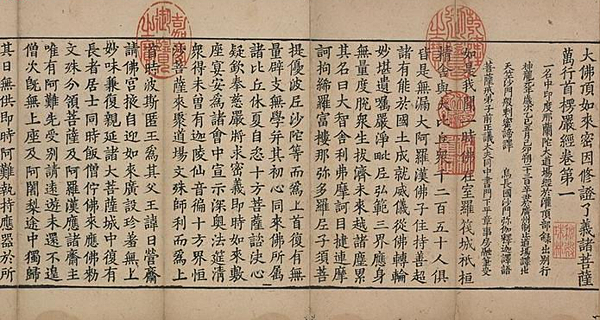 大佛頂如來密因修證了義諸菩薩
萬行首楞嚴經卷第一
一名中印度那蘭陀大道場經於灌頂部錄出別行
天竺沙門般剌蜜諦譯　烏長國沙門彌伽釋迦譯語
菩薩戒弟子前正議大夫同中書門下平章事房融筆受
如是我聞一時佛在室羅筏城祇桓
精舍與大比丘衆千二百五十人俱
皆是無漏大阿羅漢佛子住持善超
諸有能於國土成就威儀從佛轉輪
妙堪遺囑嚴淨毗尼弘範三界應身
無量度脫衆生拔濟未來越諸塵累
其名曰大智舍利弗摩訶目揵連摩
訶拘絺羅富樓那彌多羅尼子須菩
提優波尼沙陀等而爲上首復有無
量辟支無學并其初心同來佛所屬
諸比丘休夏自恣十方菩薩諮決心
疑欽奉慈嚴將求密義即時如來敷
座宴安爲諸會中宣示深奧法筵清
衆得未曾有迦陵仙音徧十方界恒
沙菩薩來聚道場文殊師利而爲上
首時波斯匿王爲其父王諱日營齋
請佛宮掖自迎如來廣設珍羞無上
妙味兼復親延諸大菩薩城中復有
長者居士同時飯僧佇佛來應佛勅
文殊分領菩薩及阿羅漢應諸齋主
唯有阿難先受別請遠遊未還不遑
僧次旣無上座及阿闍黎途中獨歸
其日無供即時阿難執持應器於所